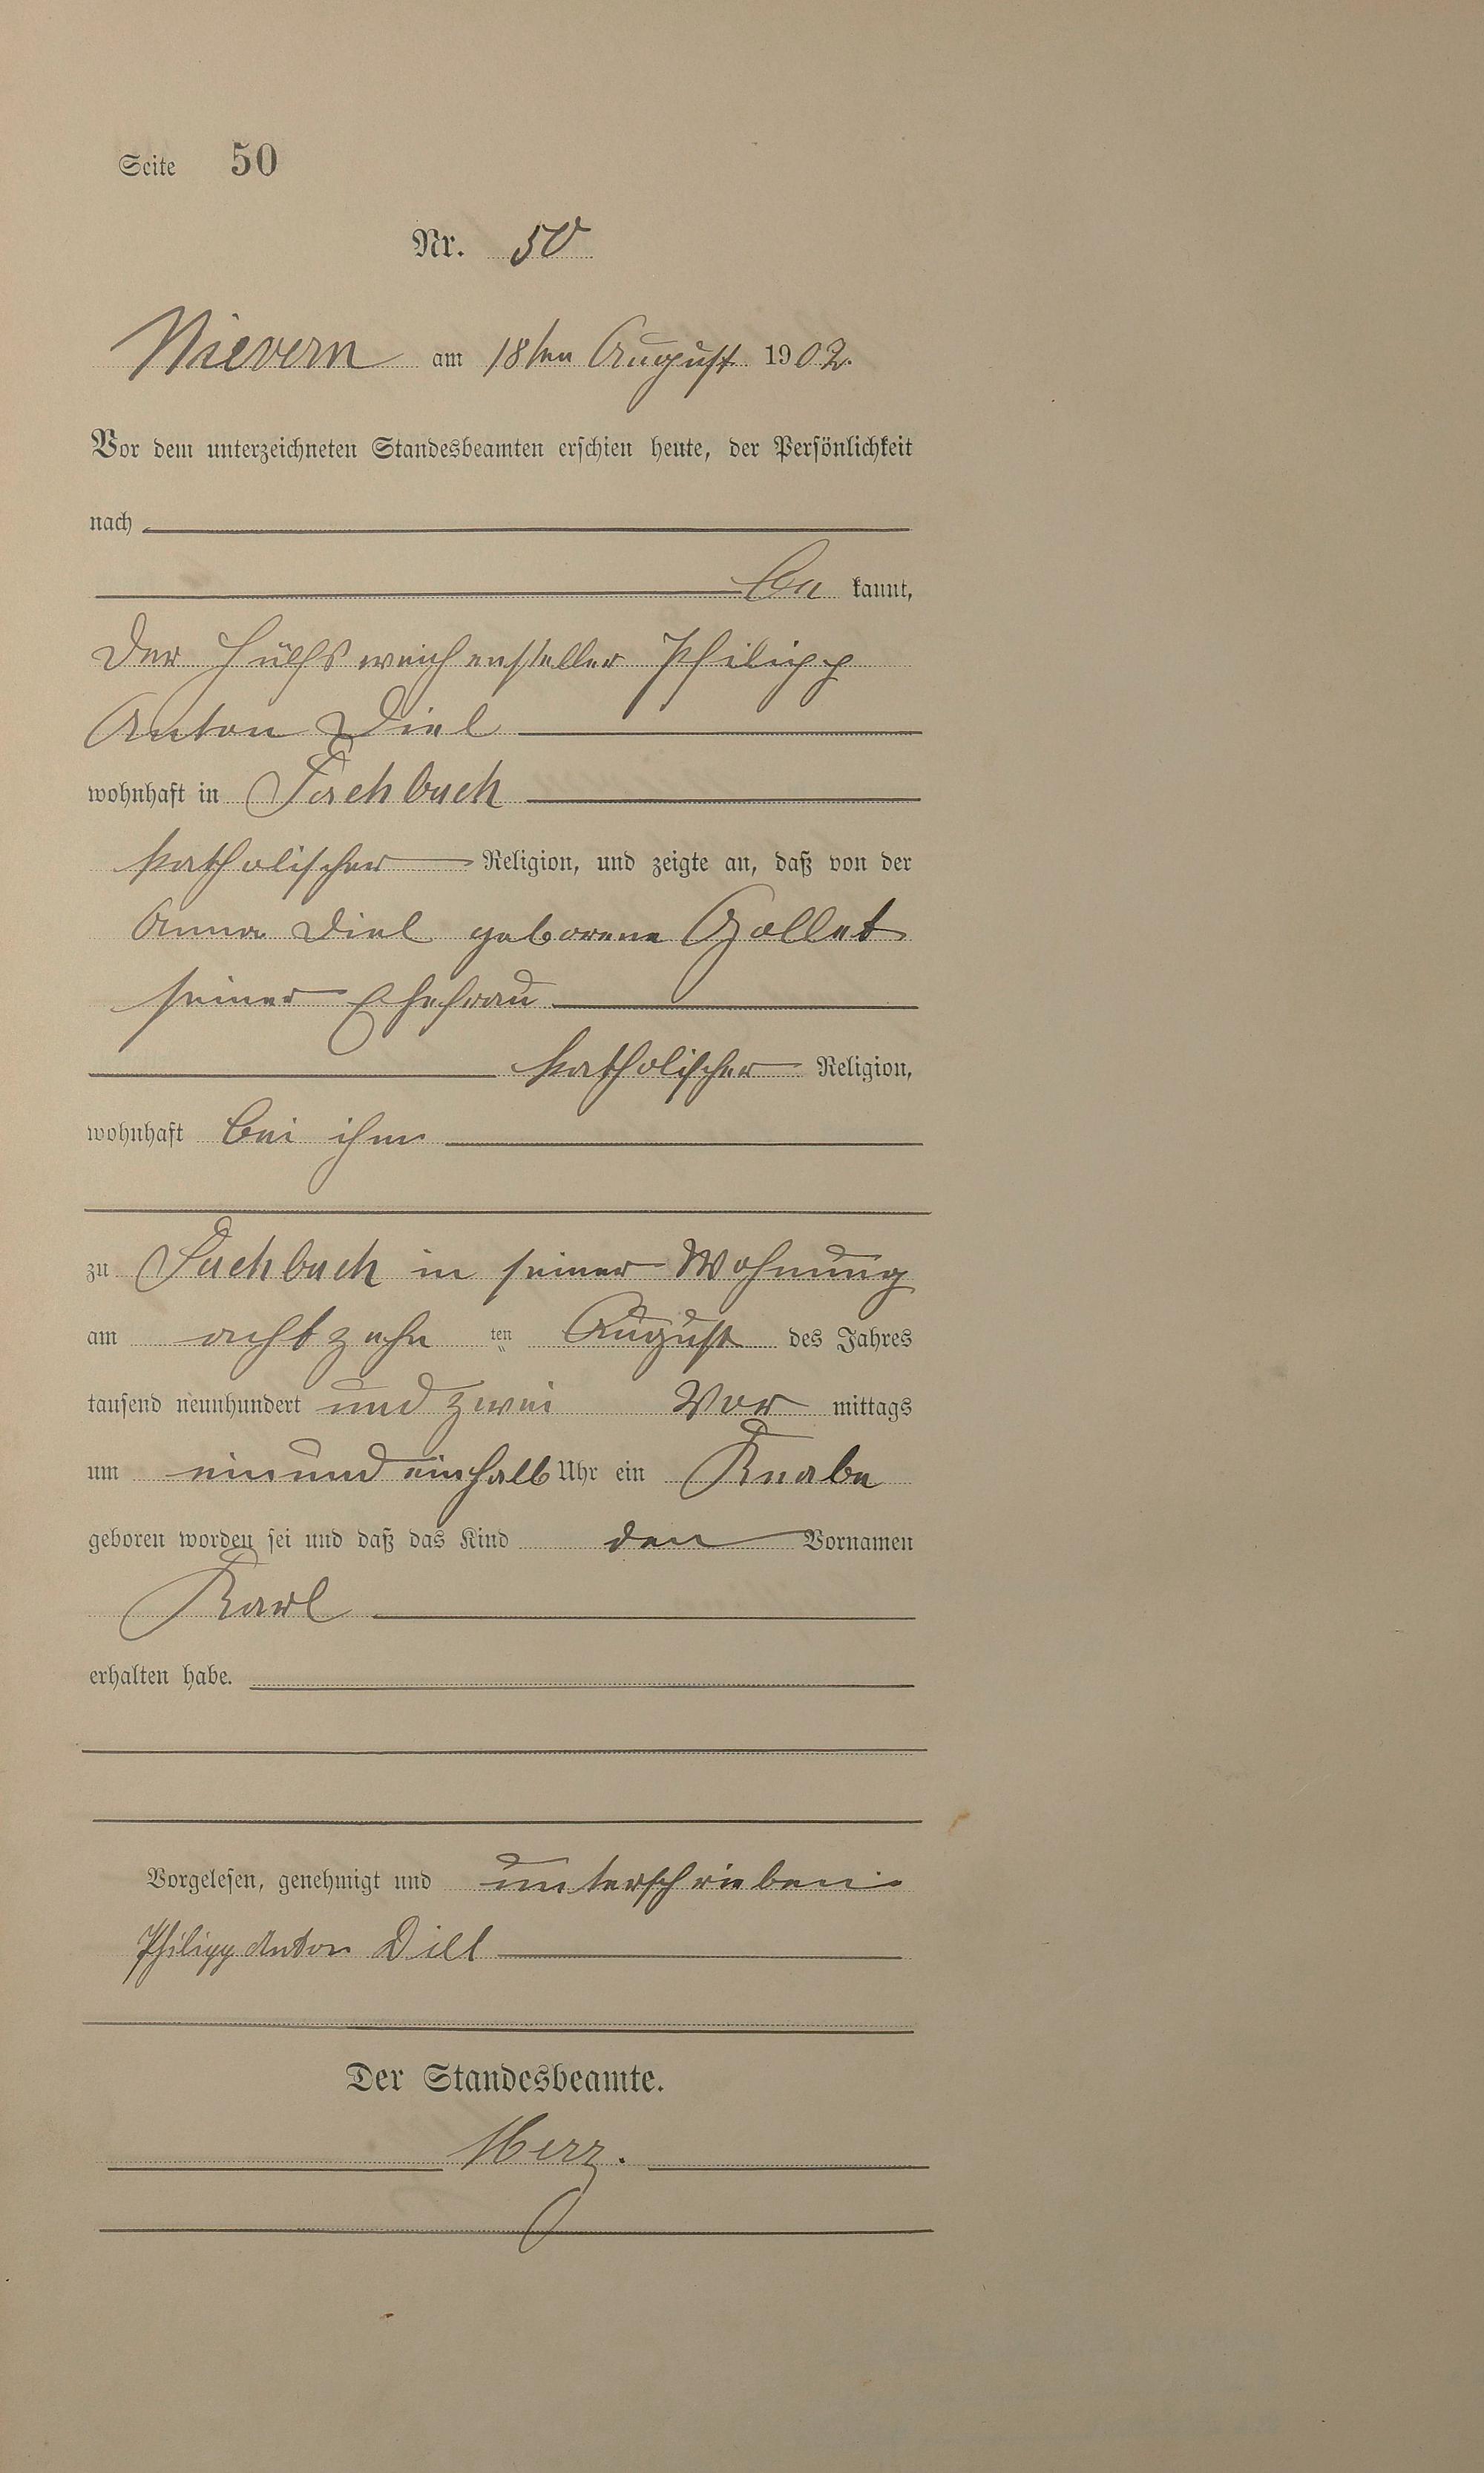 Seite 50
Nr. 50
Nievern am 18ten August 1902.
Vor dem unterzeichneten Standesbeamten erschien heute, der Persönlichkeit
nach
be kannt,
der Hülfsweichensteller Philipp
Anton Diel
wohnhaft in Fachbach
katholischer Religion, und zeigte an, daß von der
Anna Diel geborene Gollet
seiner Ehefrau
katholischer Religion,
wohnhaft bei ihm
zu Fachbach in seiner Wohnung
am achtzehn ten August des Jahres
tausend neunhundert und zwei Vor mittags
um einundeinhalb Uhr ein Knabe
geboren worden sei und daß das Kind den Vornamen
Karl
erhalten habe.
Vorgelesen, genehmigt und unterschrieben
Philipp Anton Diel
Der Standesbeamte.
Merz.